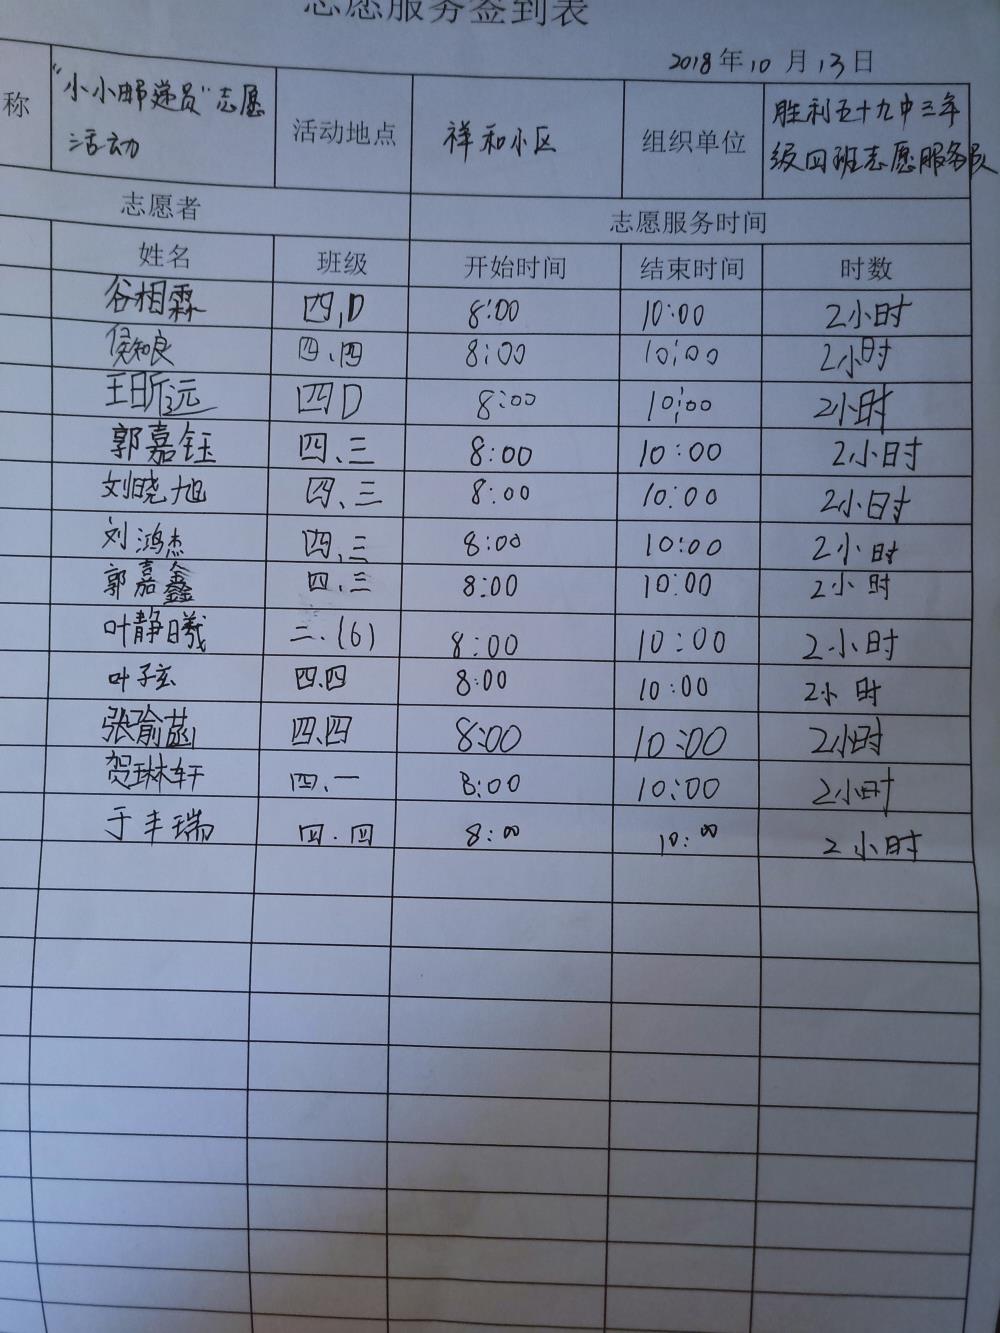 志愿服务签到表
2018年10月13日
称 "小小邮递员"志愿活动 活动地点 祥和小区 组织单位 胜利五十九中三年级四班志愿服务队
志愿者 志愿服务时间
姓名 班级 开始时间 结束时间 时数
谷相霖 四,D 8:00 10:00 2小时
侯知良 四.四 8:00 10:00 2小时
王昕远 四D 8:00 10:00 2小时
郭嘉钰 四、三 8:00 10:00 2小时
刘晓旭 四、三 8:00 10:00 2小时
刘鸿杰 四,三 8:00 10:00 2小时
郭嘉鑫 四.三 8:00 10:00 2小时
叶静曦 二.(6) 8:00 10:00 2小时
叶子玄 四.四 8:00 10:00 2小时
张瑜菡 四.四 8:00 10:00 2小时
贺琳轩 四.一 8:00 10:00 2小时
于丰瑞 四.四 8:00 10:00 2小时